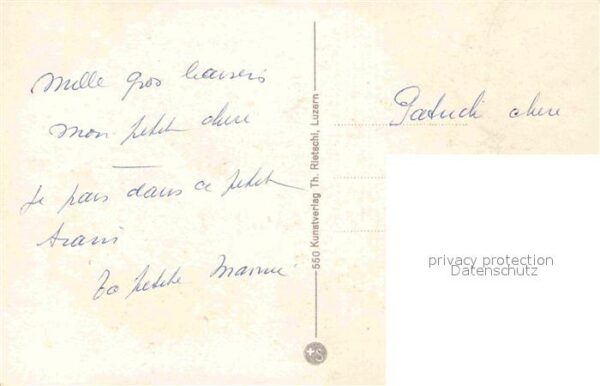 Mille gros baisers
mon petit chéri
Je pars dans ce petit
train
Ta petite Mamie
550 Kunstverlag Th. Rietschi, Luzern
Patrick chéri
privacy protection
Datenschutz